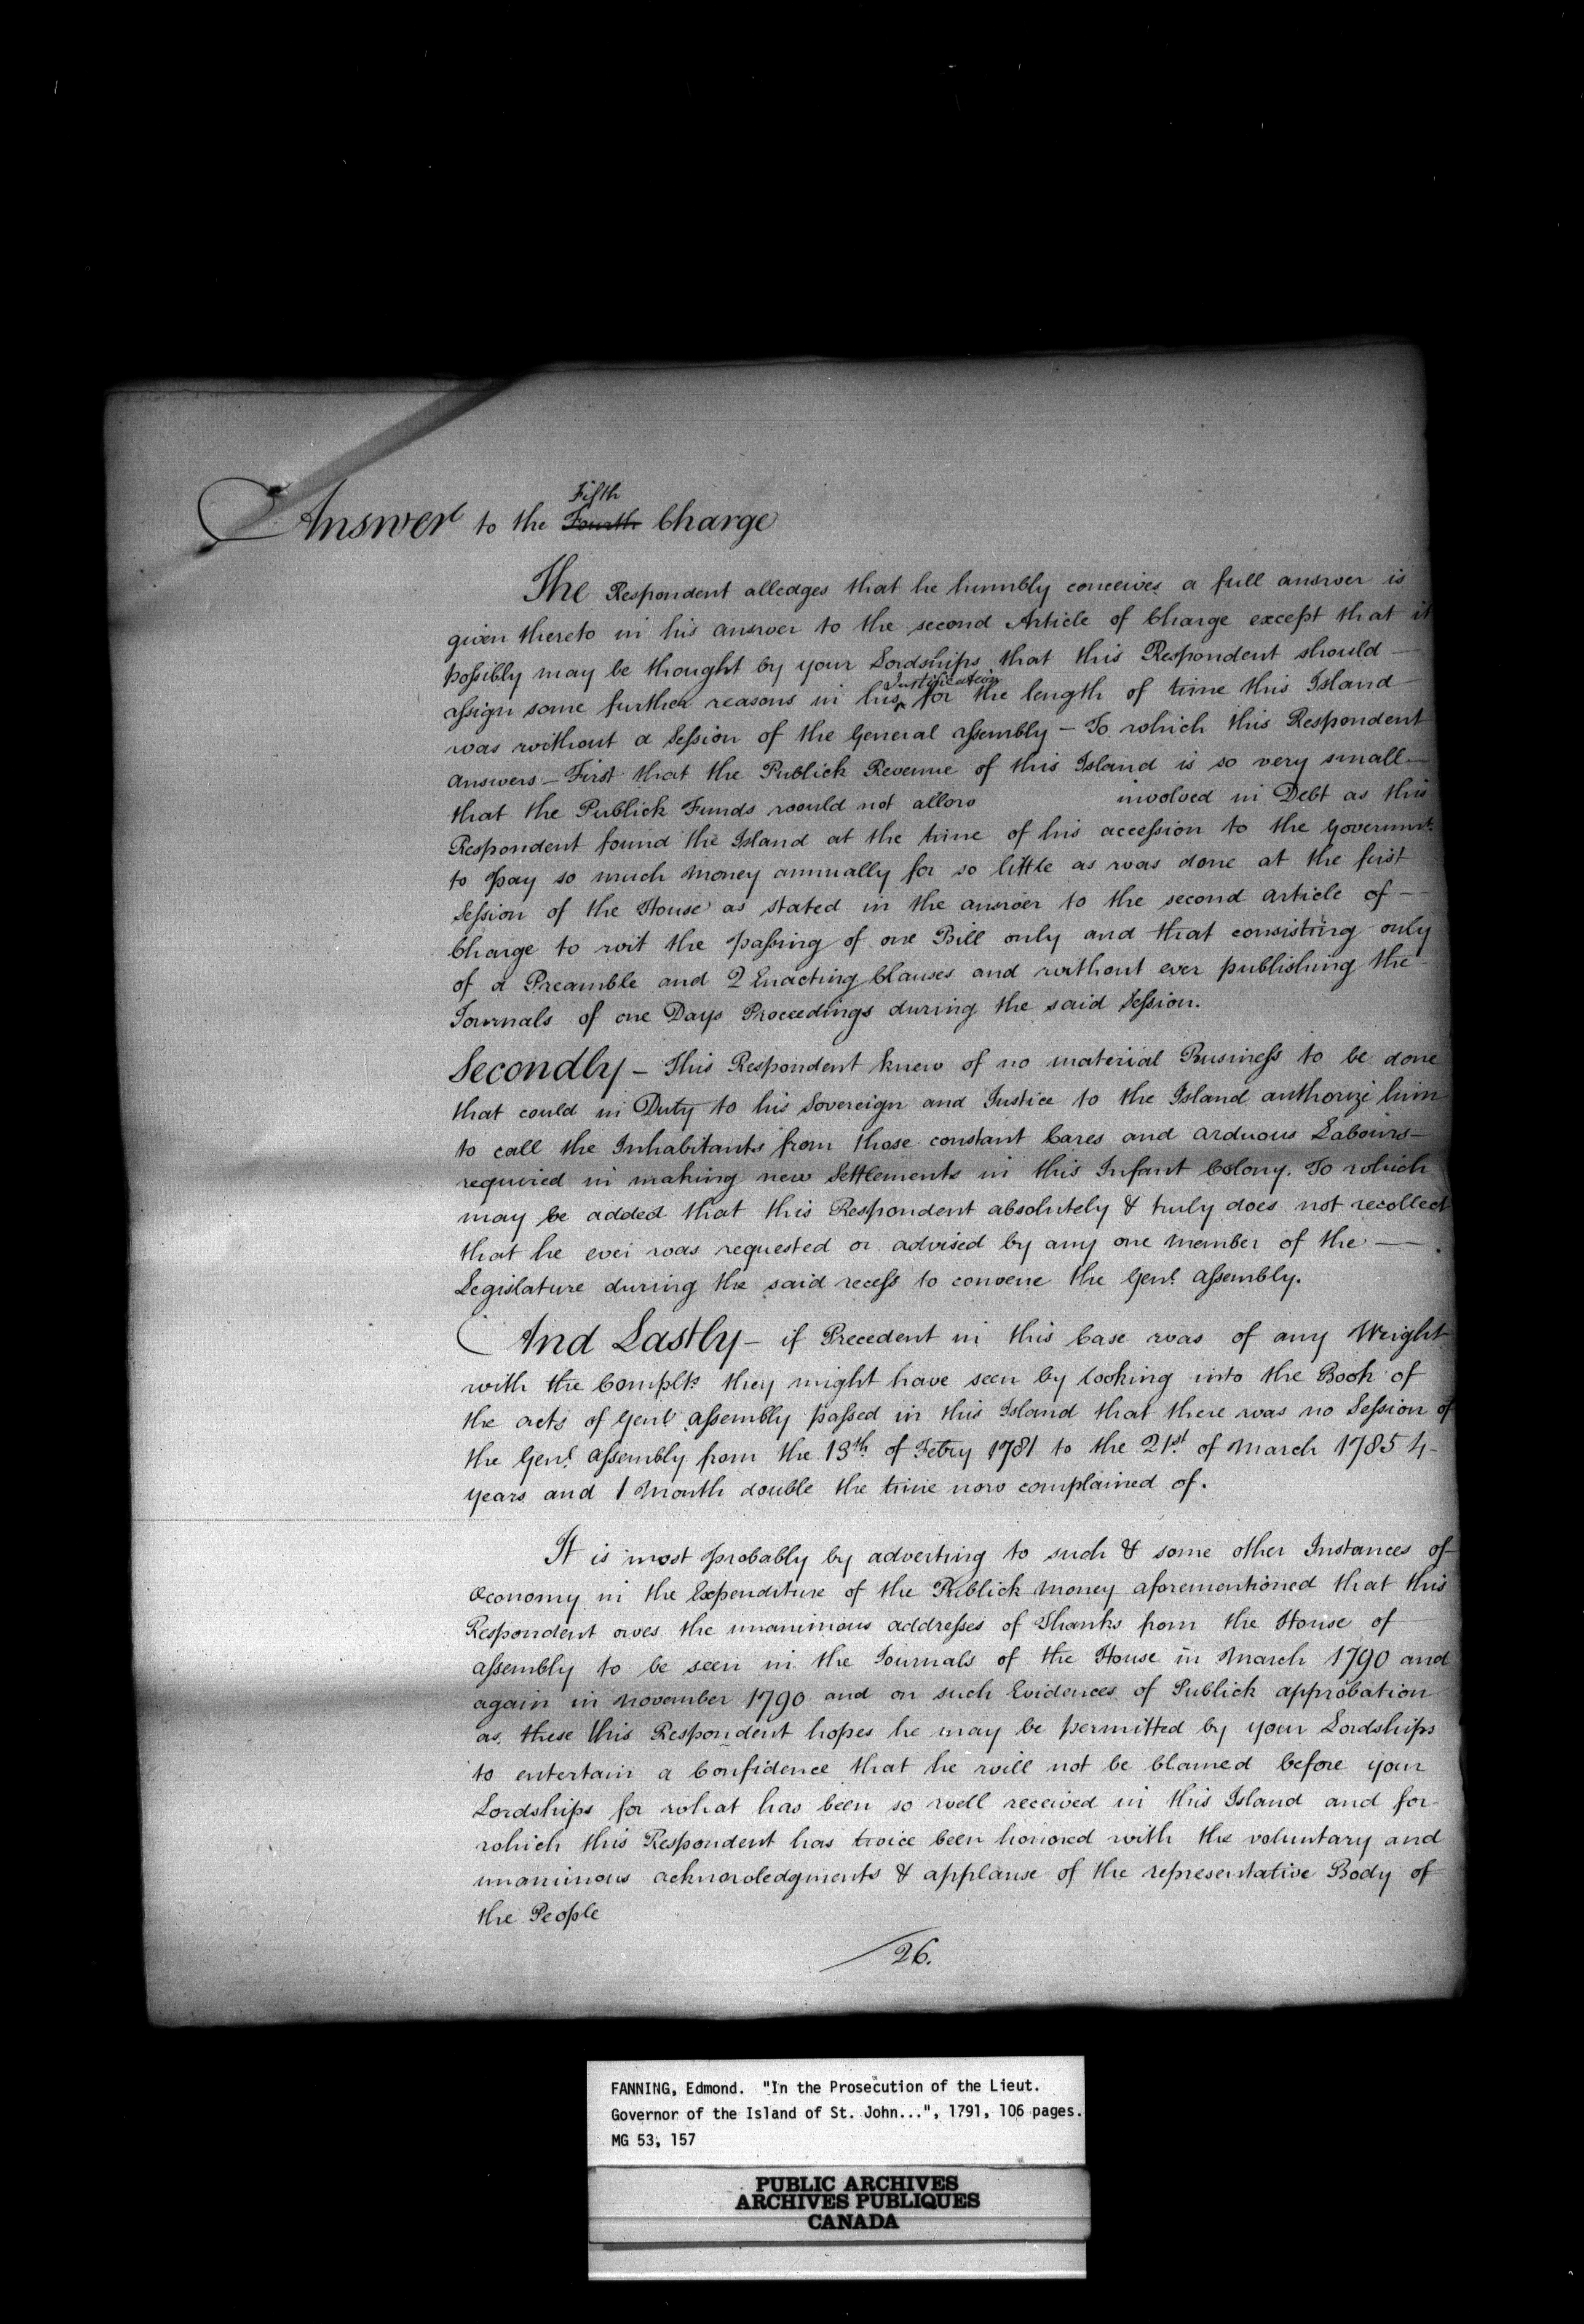 Fifth
Answer to the Fourth Charge
The Respondent alledges that he humbly conceives a full answer is
given thereto in his answer to the second Article of Charge except that it
possibly may be thought by your Lordships that this Respondent should —
Justification
assign some further reasons in his ‸ for the length of time this Island
was without a Session of the General Assembly – To which this Respondent
answers – First that the Publick Revenue of this Island is so very small –
that the Publick Funds would not allow involved in Debt as this
Respondent found the Island at the time of his accession to the Governmt.
to pay so much money annually for so little as was done at the first
Session of the House as stated in the answer to the second article of —
Charge to wit the passing of one Bill only and that consisting only
of a Preamble and 2 Enacting Clauses and without ever publishing the
Journals of one Days Proceedings during the said Session.
Secondly – This Respondent knew of no material Business to be done
that could in Duty to his Sovereign and Justice to the Island authorize him
to call the Inhabitants from those constant Cares and arduous Labours –
required in making new Settlements in this Infant Colony. To which
may be added that this Respondent absolutely & truly does not recollect
that he ever was requested or advised by any one member of the —
Legislature during the said recess to convene the Genl. Assembly.
And Lastly – if Precedent in this Case was of any Weight
with the Complts. they might have seen by looking into the Book of
the acts of Genl. Assembly passed in this Island that there was no Session of
the Genl. Assembly from the 13th. of Febry 1781 to the 21st. of March 1785 4 –
years and 1 Month double the time now complained of.
It is most probably by adverting to such & some other Instances of
Œconomy in the Expenditure of the Publick money aforementioned that this
Respondent owes the unanimous addresses of Thanks from the House of
Assembly to be seen in the Journals of the House in March 1790 and
again in November 1790 and on such Evidences of Publick approbation
as these this Respondent hopes he may be permitted by your Lordships
to entertain a Confidence that he will not be blamed before your
Lordships for what has been so well received in this Island and for
which this Respondent has twice been honored with the voluntary and
unanimous acknowledgments & applause of the representative Body of
the People
26.
FANNING, Edmond. "In the Prosecution of the Lieut.
Governor of the Island of St. John...", 1791, 106 pages.
MG 53, 157
PUBLIC ARCHIVES
ARCHIVES PUBLIQUES
CANADA